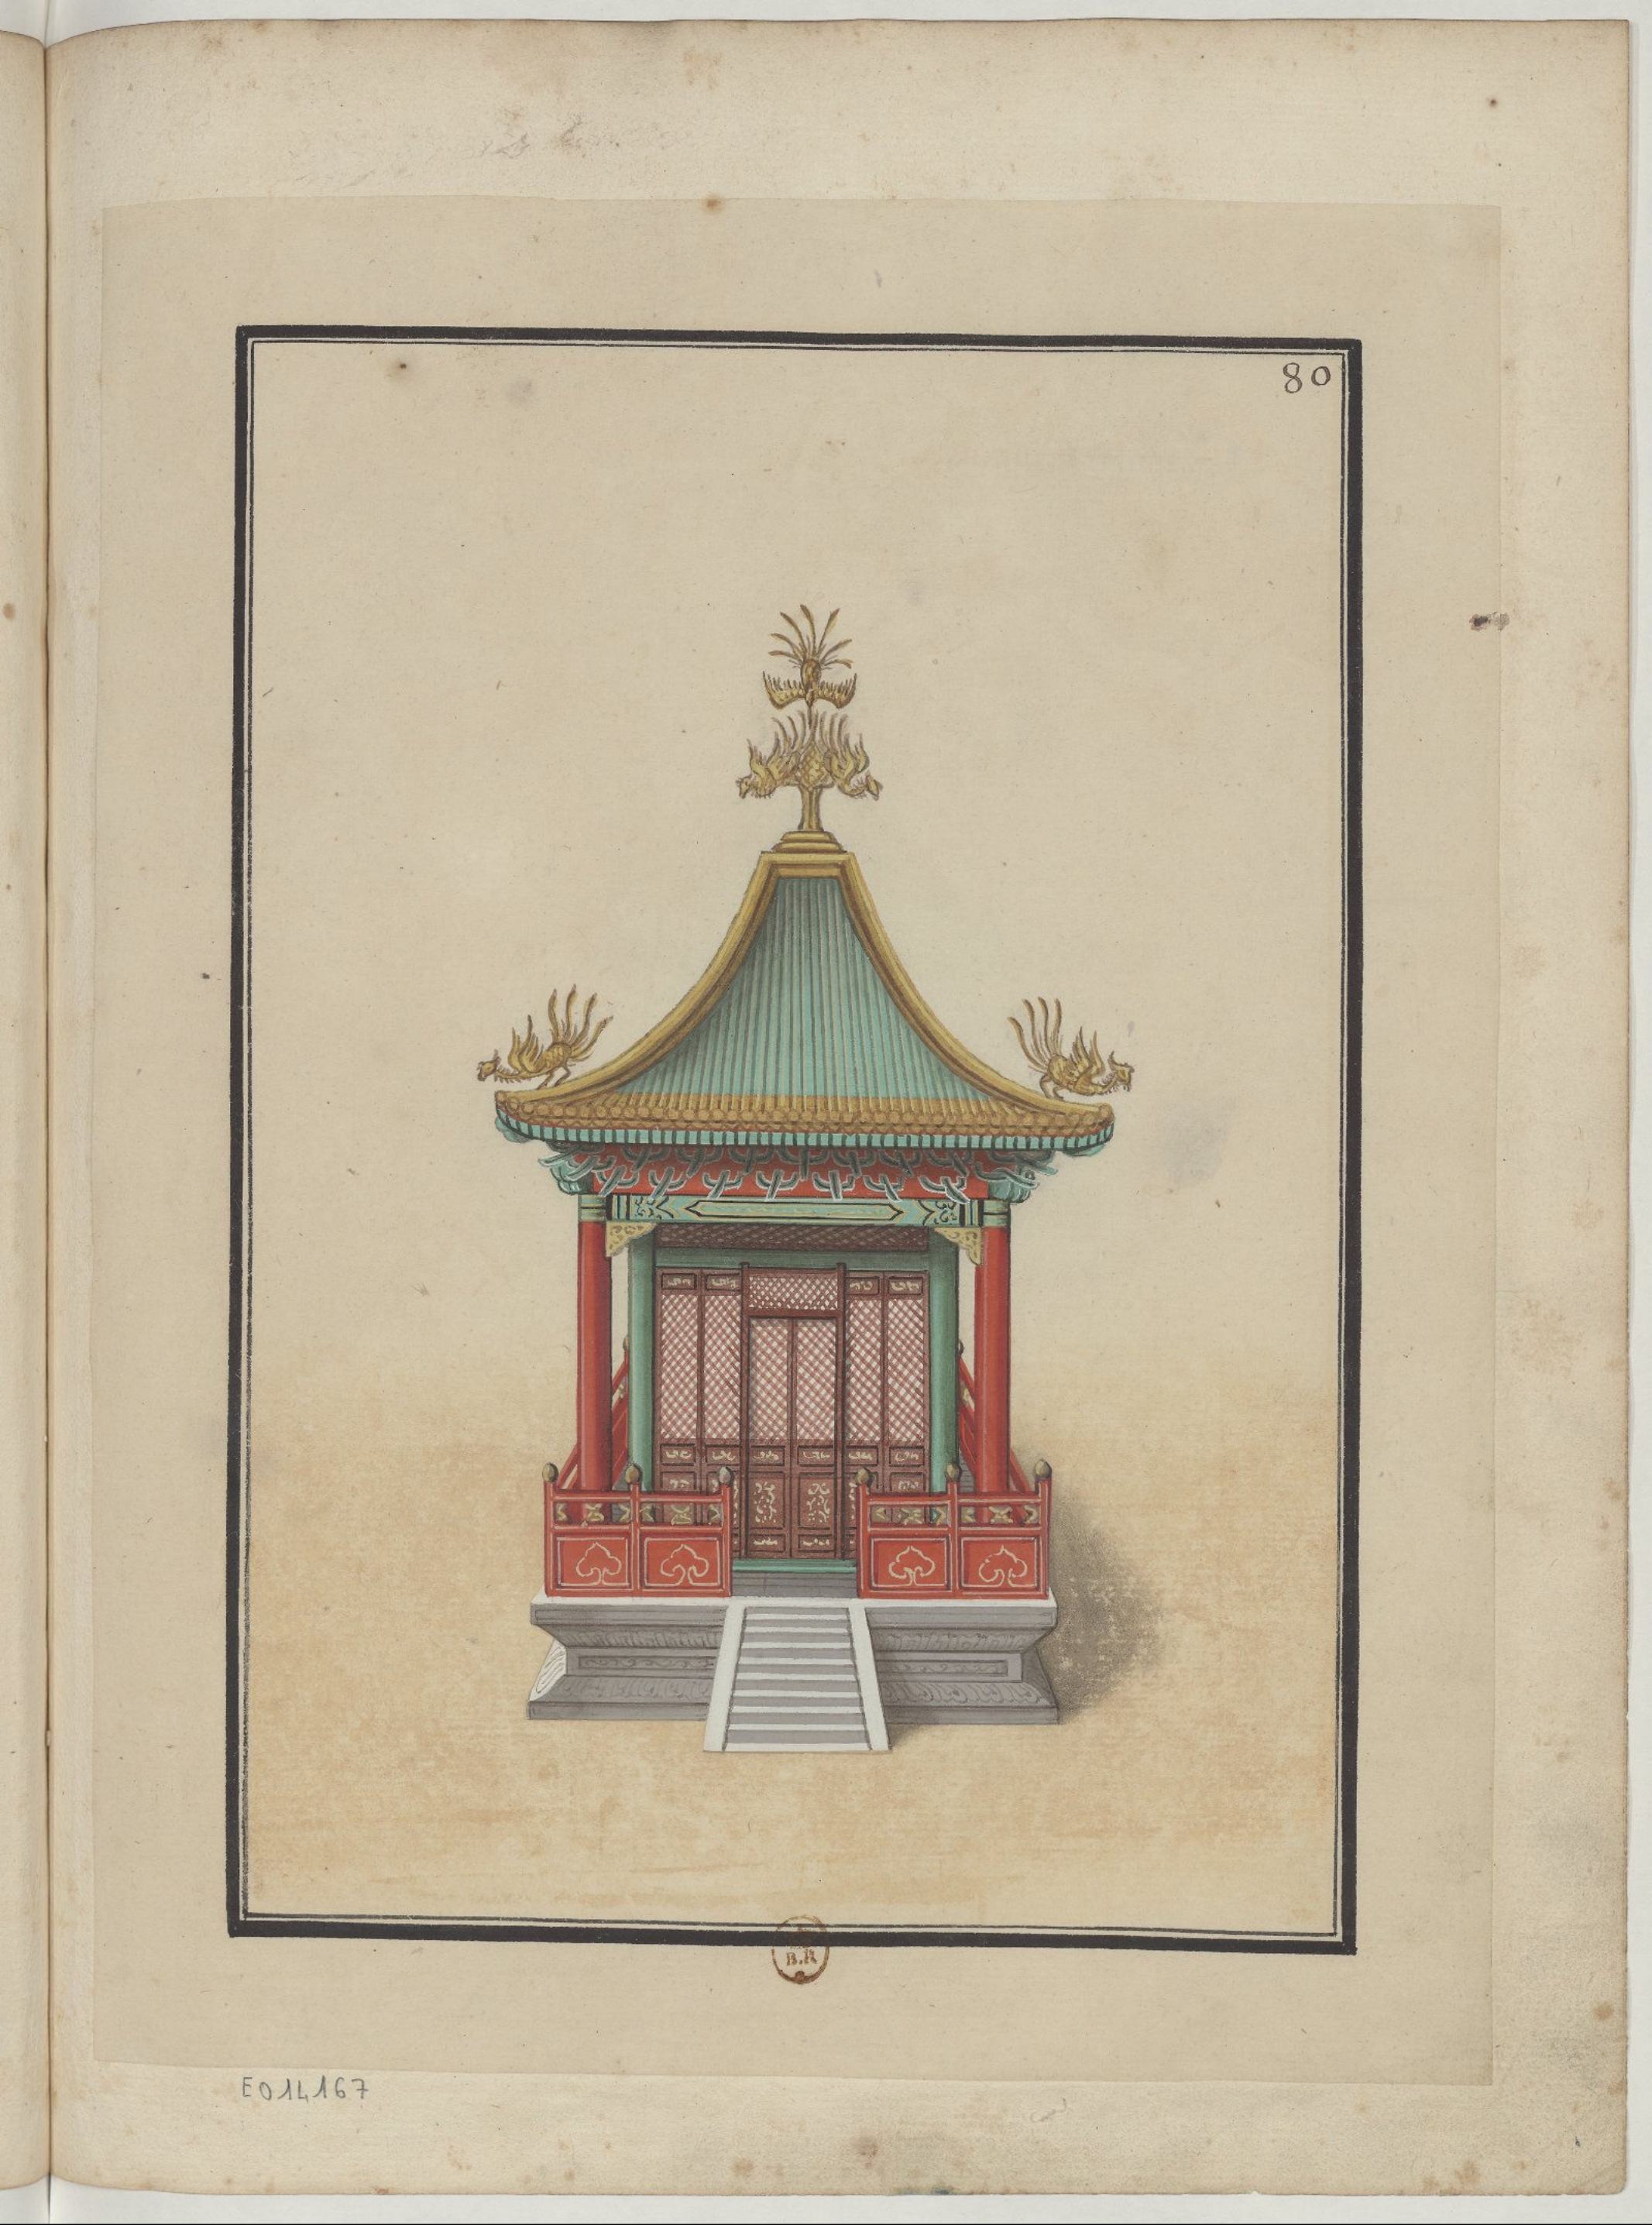 80
B.R
E014167